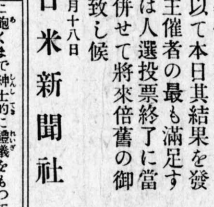 以て本日其結果を發
主催者の最も滿足す
は人選投票終了に當
併せて將來倍舊の御
致し候
月十八日
日米新聞社
に飽くまで紳士的に禮義をもつ